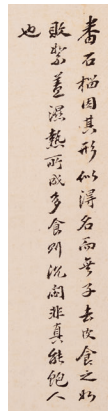 番石榴因其形似得名而無子去皮食之如
敗絮蓋濕熱所成多食則沉悶非真能飽人
也